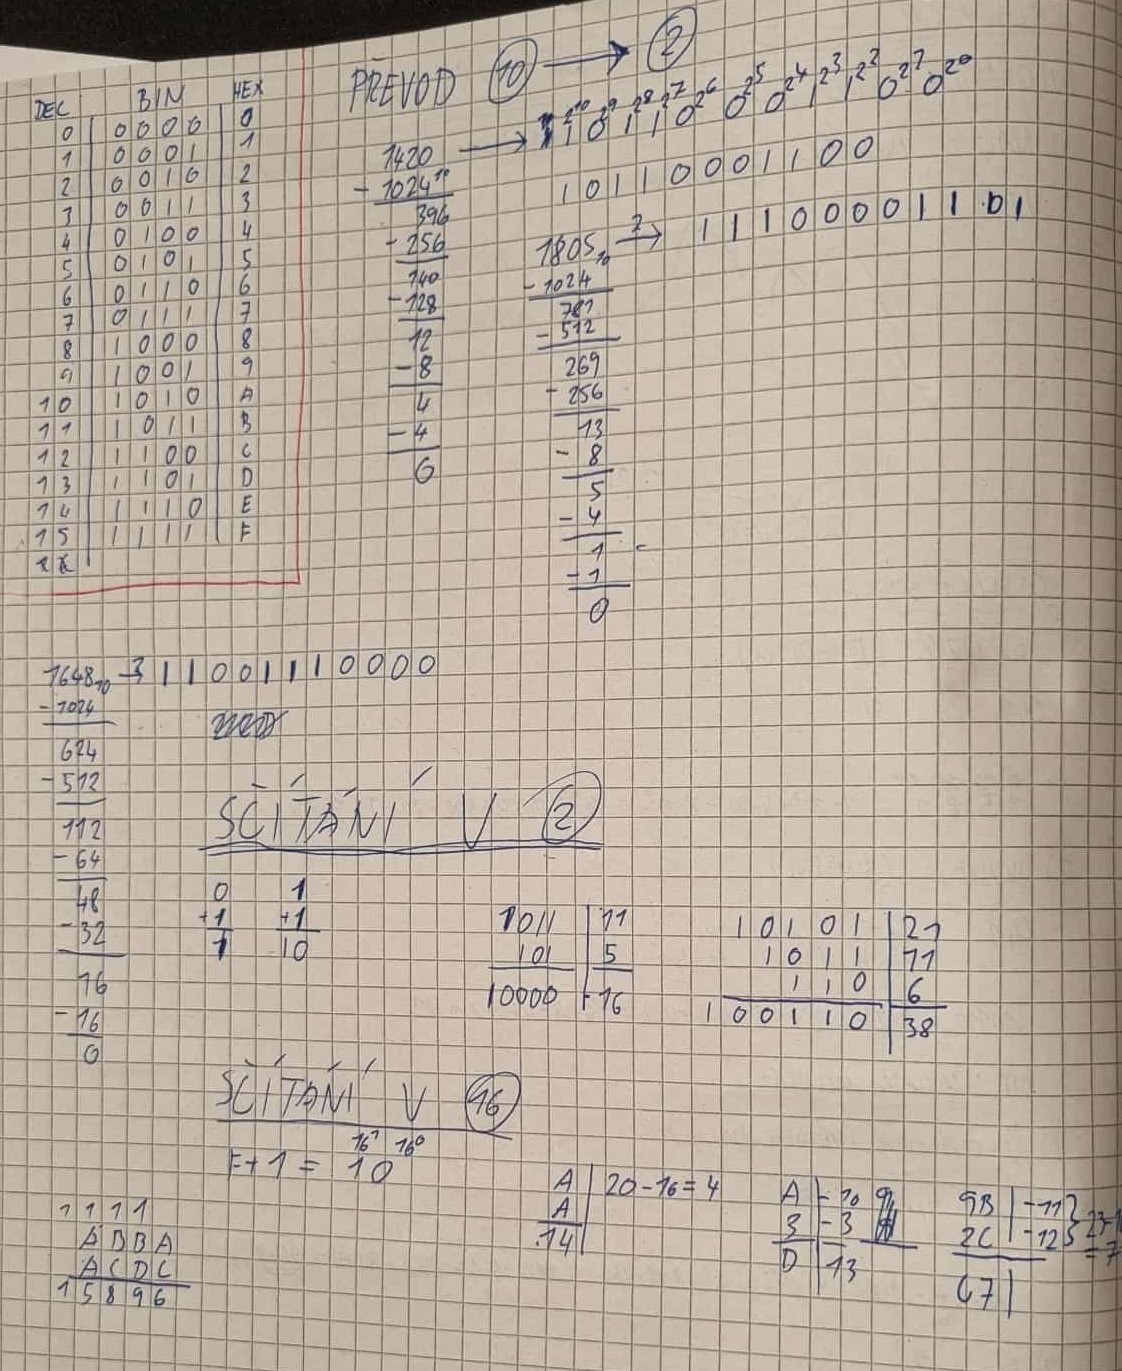 DEC BIN HEX
0 0000 0
1 0001 1
2 0010 2
3 0011 3
4 0100 4
5 0101 5
6 0110 6
7 0111 7
8 1000 8
9 1001 9
10 1010 A
11 1011 B
12 1100 C
13 1101 D
14 1110 E
15 1111 F
PŘEVOD 10 → 2
1420 →
- 1024
396
- 256
140
- 128
12
- 8
4
- 4
0
10110001100
1805₁₀ → 11100001101
- 1024
781
- 512
269
- 256
13
- 8
5
- 4
1
- 1
0
1648₁₀ → 11001110000
- 1024
624
- 512
112
- 64
48
- 32
16
- 16
0
SČÍTÁNÍ V 2
0 1
+1 +1
1 10
1011 | 11
101 | 5
10000 | 16
10101 | 21
1011 | 11
110 | 6
100110 | 38
SČÍTÁNÍ V 16
16¹ 16⁰
F+1 = 10
1111
ABBA
ACDC
15896
A | 20-16=4
A
14
A - 10
3 - 3
D 13
9B | - 11
2C | - 12
= 7
C7